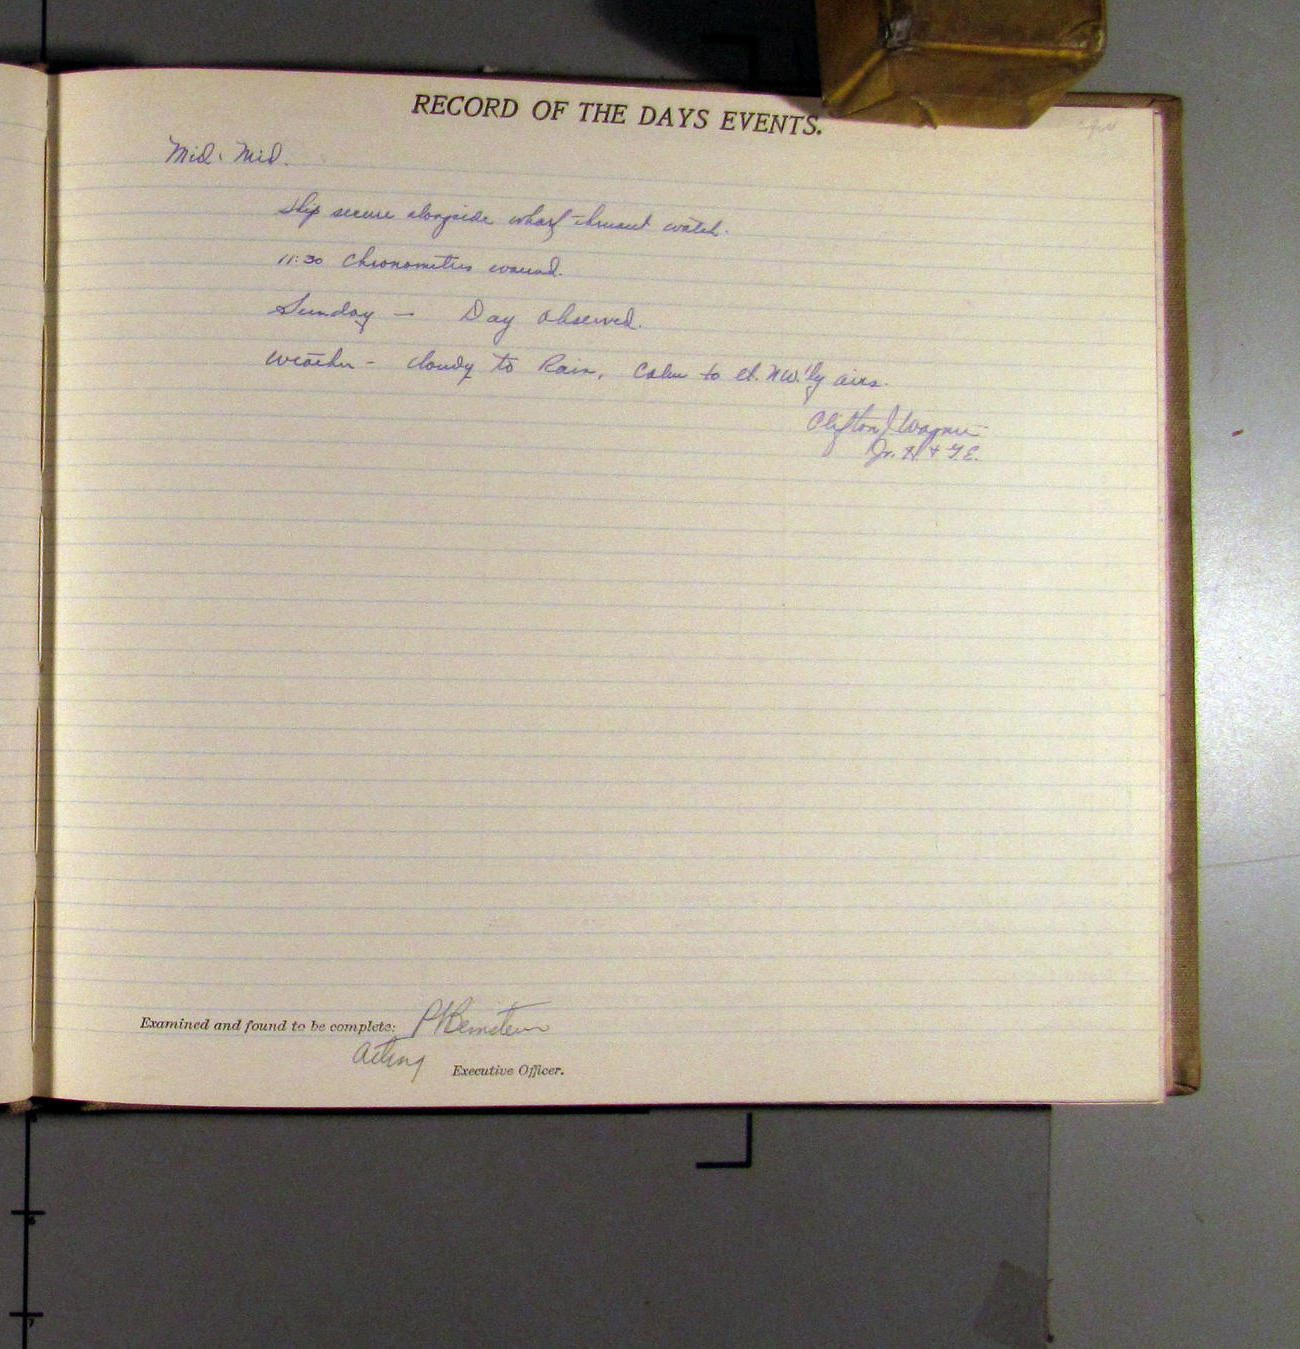 RECORD OF THE DAYS EVENTS.
Mid. Mid.
Ship secure alongside wharf watch.
11:30 Chronometers wound.
Sunday — Day Observed.
Weather - Cloudy to Rain, Calm to lt. NW'ly airs.
Clifton J Wagner
Jr. H. & G. E.
Examined and found to be complete:
Acting
Executive Officer.